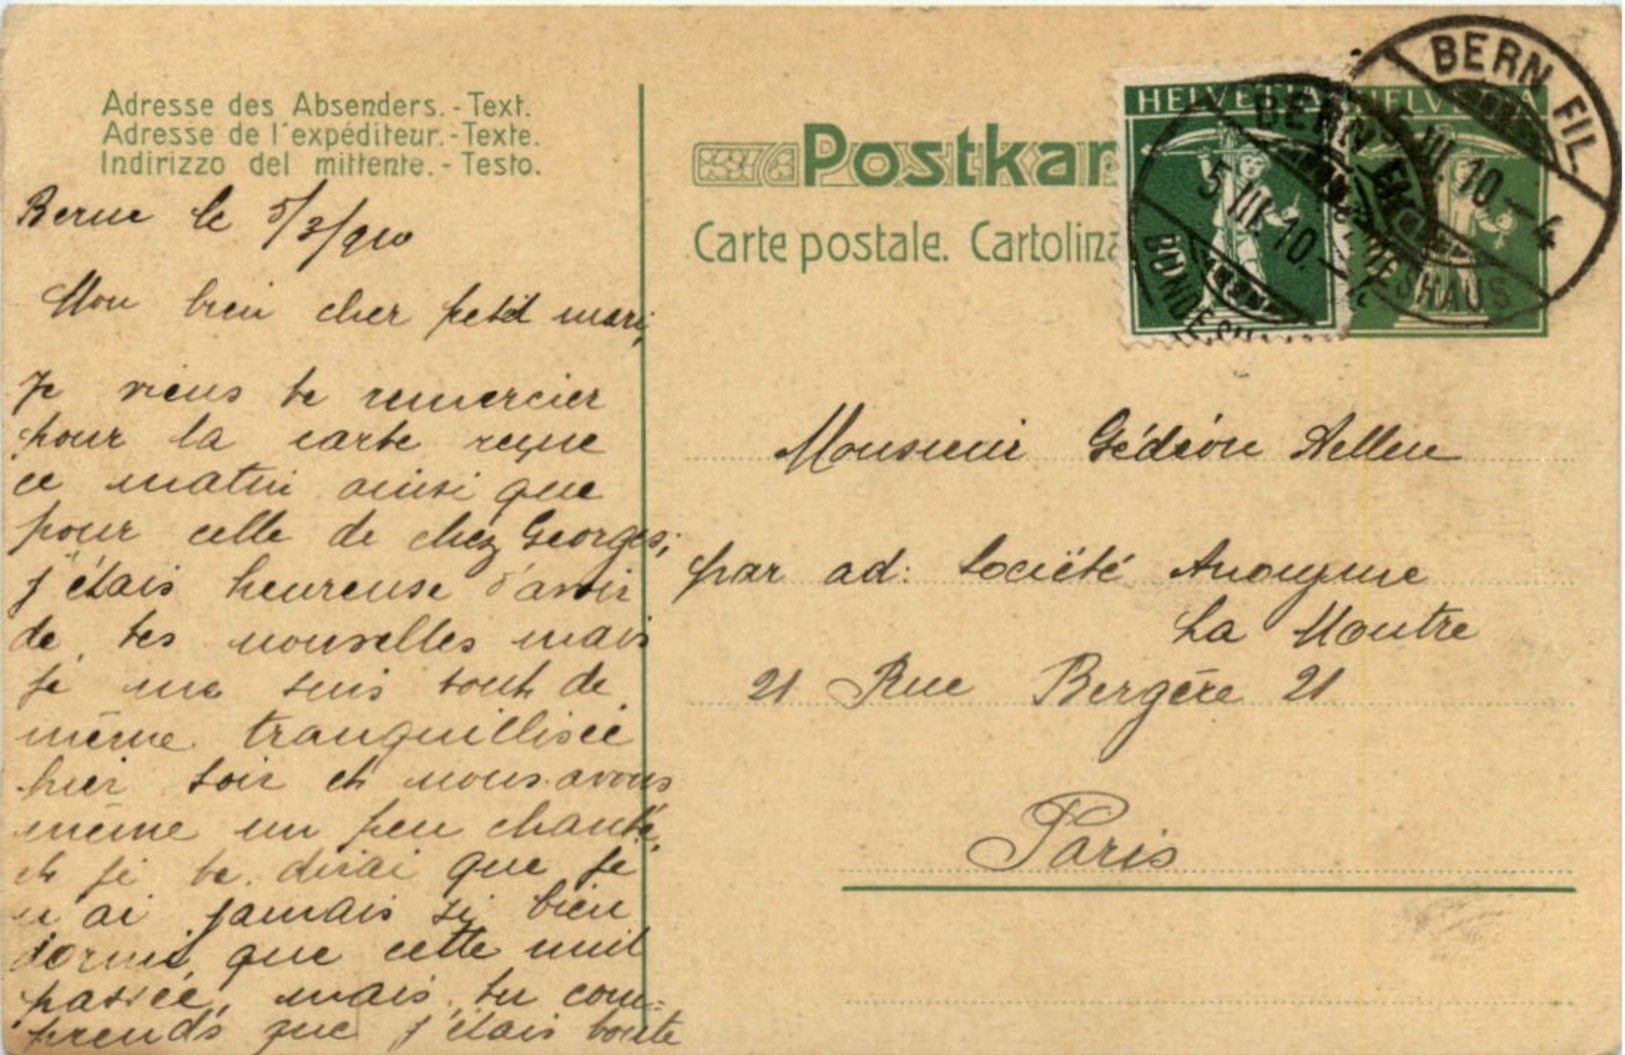 Adresse des Absenders. - Text.
Adresse de l'expéditeur. - Texte.
Indirizzo del mittente. - Testo.
Berne le 5/3/910
Mon bien cher petit mari,
Je viens te remercier
pour la carte reçue
ce matin ainsi que
pour celle de chez Georges;
j'étais heureuse d'avoir
de tes nouvelles mais
je me suis tout de
même tranquillisée
hier soir et nous avons
même un peu chanté,
et je te dirai que je
n'ai jamais si bien
dormi, que cette nuit
passée, mais, tu com=
prends que j'étais toute
Postkar
Carte postale. Cartolina
HELVETIA
HELVETIA
BERN
5. III. 10. - 4
BUNDESHAUS
BERN FIL.
5. III. 10. - 4
BUNDESHAUS
Monsieur Gédéon Aellen
par ad: Société Anonyme
La Montre
21 Rue Bergère 21
Paris